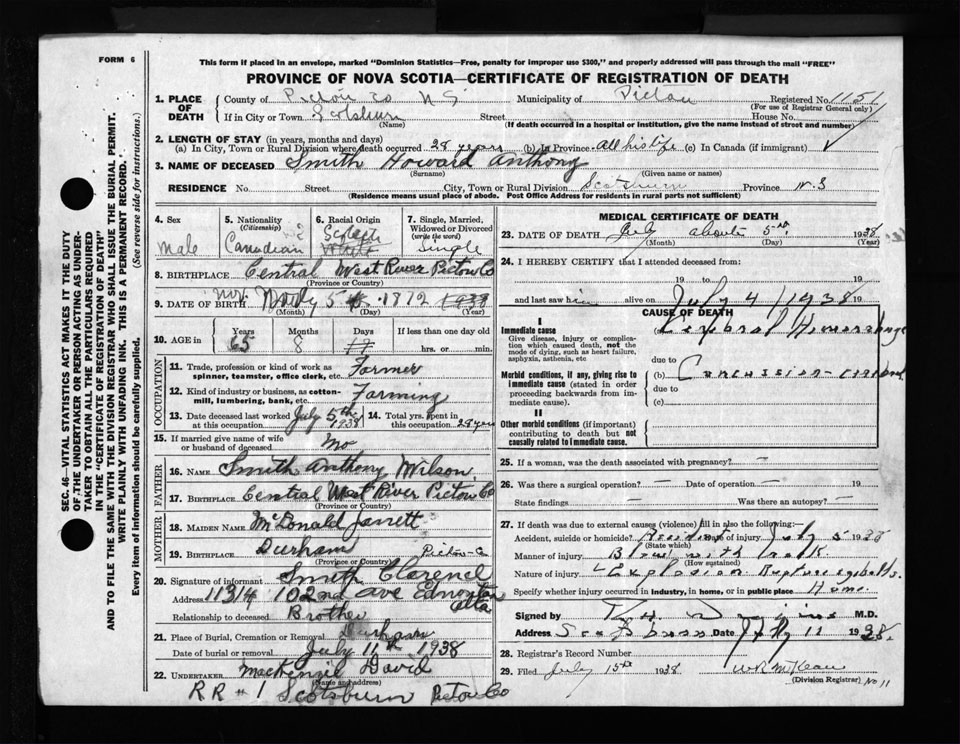 FORM 6
This form if placed in an envelope, marked "Dominion Statistics—Free, penalty for improper use $300," and properly addressed will pass through the mail "FREE"
PROVINCE OF NOVA SCOTIA—CERTIFICATE OF REGISTRATION OF DEATH
SEC. 46—VITAL STATISTICS ACT MAKES IT THE DUTY
OF THE UNDERTAKER OR PERSON ACTING AS UNDER-
TAKER TO OBTAIN ALL THE PARTICULARS REQUIRED
IN THE "CERTIFICATE OF REGISTRATION OF DEATH"
AND TO FILE THE SAME WITH THE DIVISION REGISTRAR WHO SHALL ISSUE THE BURIAL PERMIT.
WRITE PLAINLY WITH UNFADING INK. THIS IS A PERMANENT RECORD.
Every item of information should be carefully supplied. (See reverse side for instructions.)
1. PLACE OF DEATH
County of Pictou Co N S Municipality of Pictou Registered No. 1151
(For use of Registrar General only)
If in City or Town Scotsburn Street House No.
(Name) (If death occurred in a hospital or institution, give the name instead of street and number)
2. LENGTH OF STAY (in years, months and days)
(a) In City, Town or Rural Division where death occurred 28 years (b) In Province All his life (c) In Canada (if immigrant)
3. NAME OF DECEASED Smith Howard Anthony
(Surname) (Given name or names)
RESIDENCE No. Street City, Town or Rural Division Scotsburn Province N.S
(Residence means usual place of abode. Post Office Address for residents in rural parts not sufficient)
4. Sex
Male
5. Nationality
(Citizenship)
Canadian
6. Racial Origin
Scotch
White
7. Single, Married,
Widowed or Divorced
(write the word)
Single
8. BIRTHPLACE Central West River Pictou Co
(Province or Country)
9. DATE OF BIRTH Nov. 5 1872 1938
(Month) (Day) (Year)
10. AGE in
Years Months Days If less than one day old
65 8 hrs. or min.
OCCUPATION
11. Trade, profession or kind of work as
spinner, teamster, office clerk, etc. Farmer
12. Kind of industry or business, as cotton-
mill, lumbering, bank, etc. Farming
13. Date deceased last worked
at this occupation July 5th 1938
14. Total yrs. spent in
this occupation 28 years
15. If married give name of wife
or husband of deceased No
FATHER
16. NAME Smith Anthony Wilson
17. BIRTHPLACE Central West River Pictou Co
(Province or Country)
MOTHER
18. MAIDEN NAME McDonald Janett
19. BIRTHPLACE Durham Pictou Co
(Province or Country)
20. Signature of informant Smith Clarence
Address 11314 102nd Ave Edmonton Alta
Relationship to deceased Brother
21. Place of Burial, Cremation or Removal Durham
Date of burial or removal July 11th 1938
22. UNDERTAKER MacKenzie David
(Name and address)
RR #1 Scotsburn Pictou Co
MEDICAL CERTIFICATE OF DEATH
23. DATE OF DEATH July about 5th 1938
(Month) (Day) (Year)
24. I HEREBY CERTIFY that I attended deceased from:
19 to 19
and last saw him alive on July 4 1938 19
CAUSE OF DEATH
I
Immediate cause
Give disease, injury or complica-
tion which caused death, not the
mode of dying, such as heart failure,
asphyxia, asthenia, etc
(a) Cerebral Hemorrhage
due to
Morbid conditions, if any, giving rise to
immediate cause (stated in order
proceeding backwards from im-
mediate cause).
(b) Concussion - cerebral
due to
(c)
II
Other morbid conditions (if important)
contributing to death but not
causally related to immediate cause.
25. If a woman, was the death associated with pregnancy? —
26. Was there a surgical operation? — Date of operation — 19
State findings — Was there an autopsy? —
27. If death was due to external causes (violence) fill in also the following:
Accident, suicide or homicide? Accident Date of injury July 5 1938
(State which)
Manner of injury Blow with rock
(How sustained)
Nature of injury Explosion Rupture
Specify whether injury occurred in industry, in home, or in public place Home
Signed by M.D.
Address Scotsburn Date July 11 1938.
28. Registrar's Record Number
29. Filed July 15th 1938 W R McKean
(Division Registrar) No 11